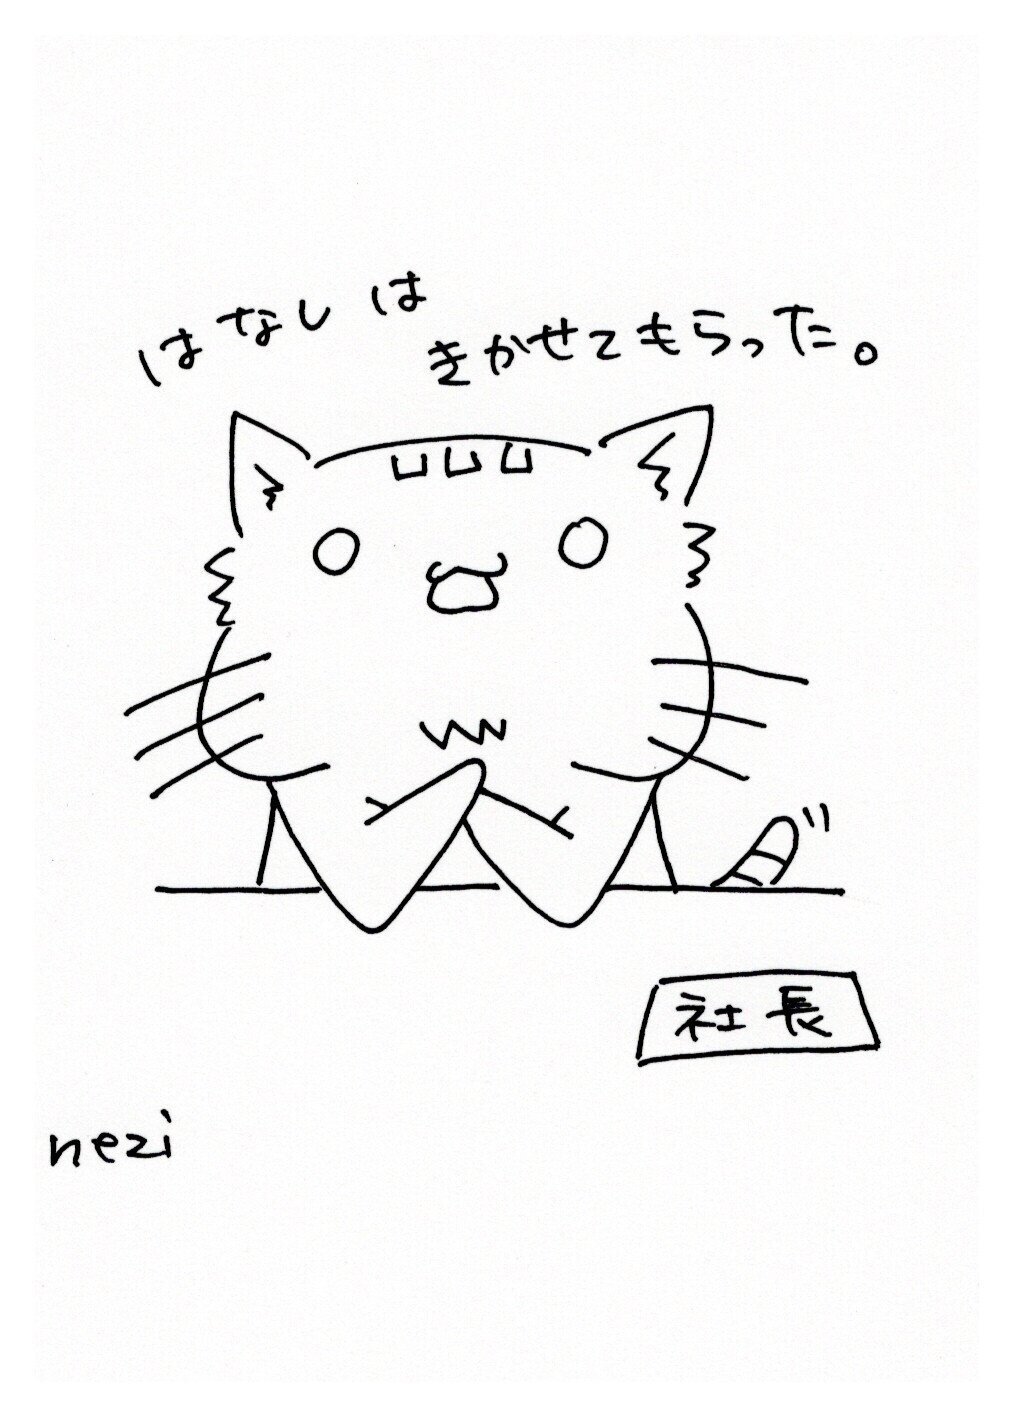 はなしは
きかせてもらった。
社長
nezi